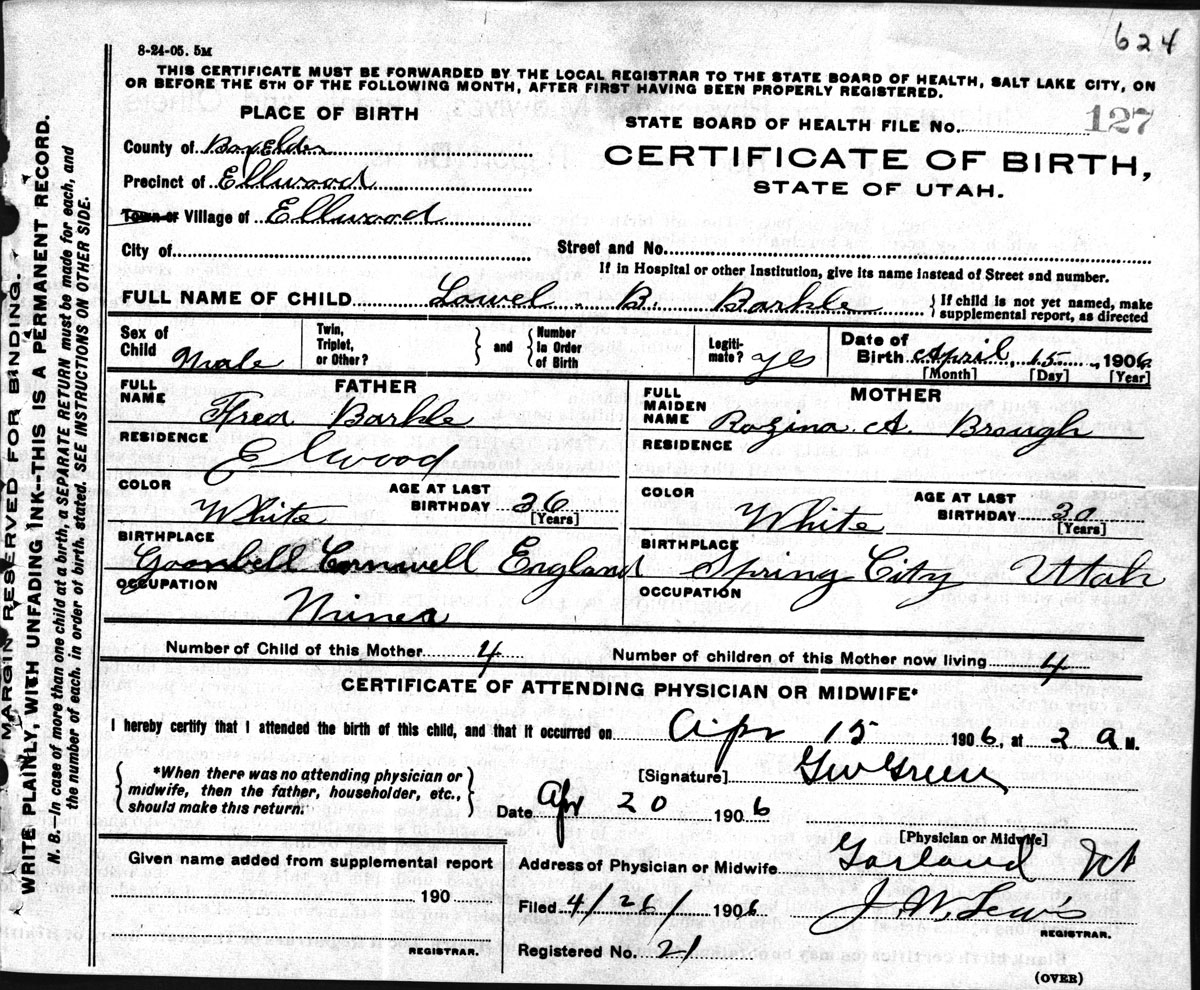 624
8-24-05. 5M
THIS CERTIFICATE MUST BE FORWARDED BY THE LOCAL REGISTRAR TO THE STATE BOARD OF HEALTH, SALT LAKE CITY, ON
OR BEFORE THE 5TH OF THE FOLLOWING MONTH, AFTER FIRST HAVING BEEN PROPERLY REGISTERED.
PLACE OF BIRTH
STATE BOARD OF HEALTH FILE No. 127
County of Box Elder
CERTIFICATE OF BIRTH,
STATE OF UTAH.
Precinct of Ellwood
Town or Village of Ellwood
City of
Street and No.
If in Hospital or other Institution, give its name instead of Street and number.
FULL NAME OF CHILD Lowel B. Barkle { If child is not yet named, make
supplemental report, as directed
Sex of Child Male
Twin, Triplet, or Other?
} and { Number In Order of Birth
Legitimate? yes
Date of Birth April, 15, 1906
[Month] [Day] [Year]
FATHER
FULL NAME Fred Barkle
MOTHER
FULL MAIDEN NAME Rozina A. Brough
RESIDENCE Elwood
RESIDENCE
COLOR White
AGE AT LAST BIRTHDAY 36 [Years]
COLOR White
AGE AT LAST BIRTHDAY 30 [Years]
BIRTHPLACE Goonbell Cornwell England
BIRTHPLACE Spring City Utah
OCCUPATION Miner
OCCUPATION
Number of Child of this Mother 4
Number of children of this Mother now living 4
CERTIFICATE OF ATTENDING PHYSICIAN OR MIDWIFE*
I hereby certify that I attended the birth of this child, and that it occurred on Apr 15 1906, at 2 a M.
{ *When there was no attending physician or
midwife, then the father, householder, etc.,
should make this return. }
[Signature] Geo Green
Date Apr 20 1906
[Physician or Midwife]
Given name added from supplemental report
190
REGISTRAR.
Address of Physician or Midwife Garland Ut
Filed 4/26/ 1906 J. W. Lewis
REGISTRAR.
Registered No. 21
(OVER)
MARGIN RESERVED FOR BINDING.
WRITE PLAINLY, WITH UNFADING INK--THIS IS A PERMANENT RECORD.
N. B.--In case of more than one child at a birth, a SEPARATE RETURN must be made for each, and
the number of each, in order of birth, stated. SEE INSTRUCTIONS ON OTHER SIDE.